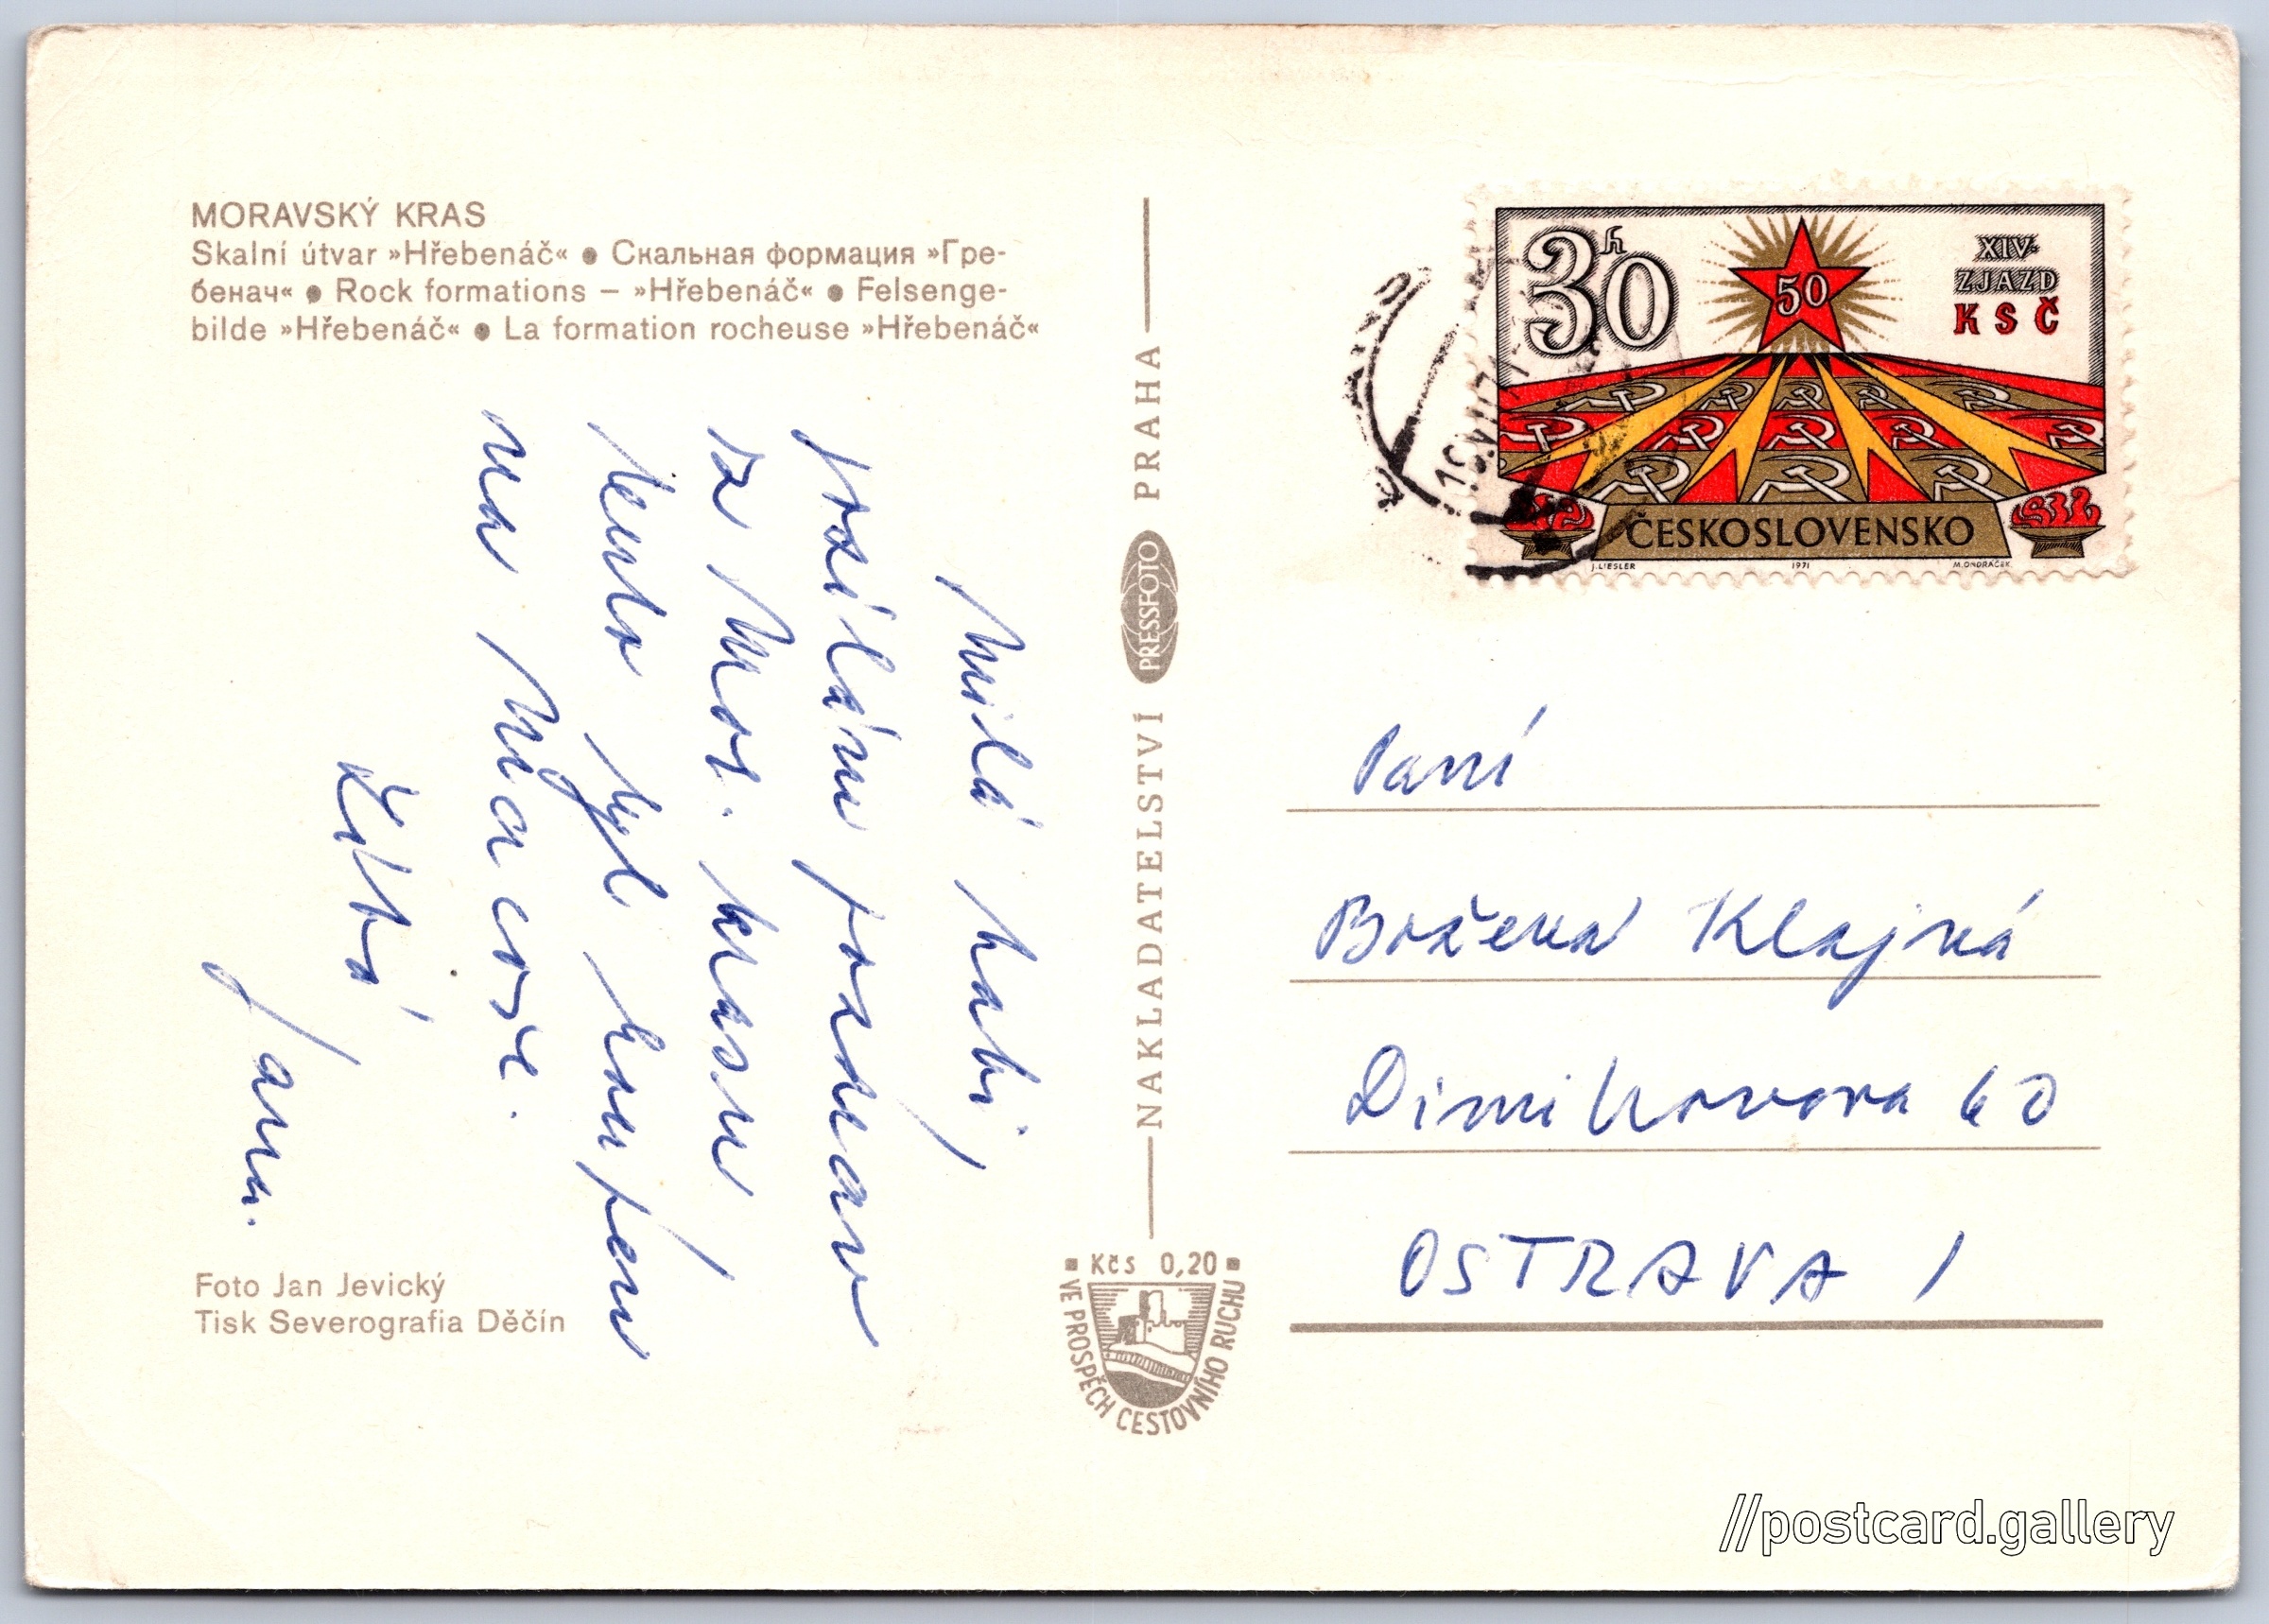 MORAVSKÝ KRAS
Skalní útvar »Hřebenáč« ● Скальная формация »Гре-
бенач« ● Rock formations – »Hřebenáč« ● Felsenge-
bilde »Hřebenáč« ● La formation rocheuse »Hřebenáč«
Milá babi,
posílám pozdrav
za Mor. krasu
tento byl koupen
na Macoše.
Líbá
Jana.
Foto Jan Jevický
Tisk Severografia Děčín
NAKLADATELSTVÍ PRESSFOTO PRAHA
Kčs 0,20
VE PROSPĚCH CESTOVNÍHO RUCHU
30h
50
XIV.
ZJAZD
KSČ
ČESKOSLOVENSKO
J. LIESLER 1971 M. ONDRÁČEK
Paní
Božena Klajná
Dimitrovova 60
OSTRAVA 1
//postcard.gallery